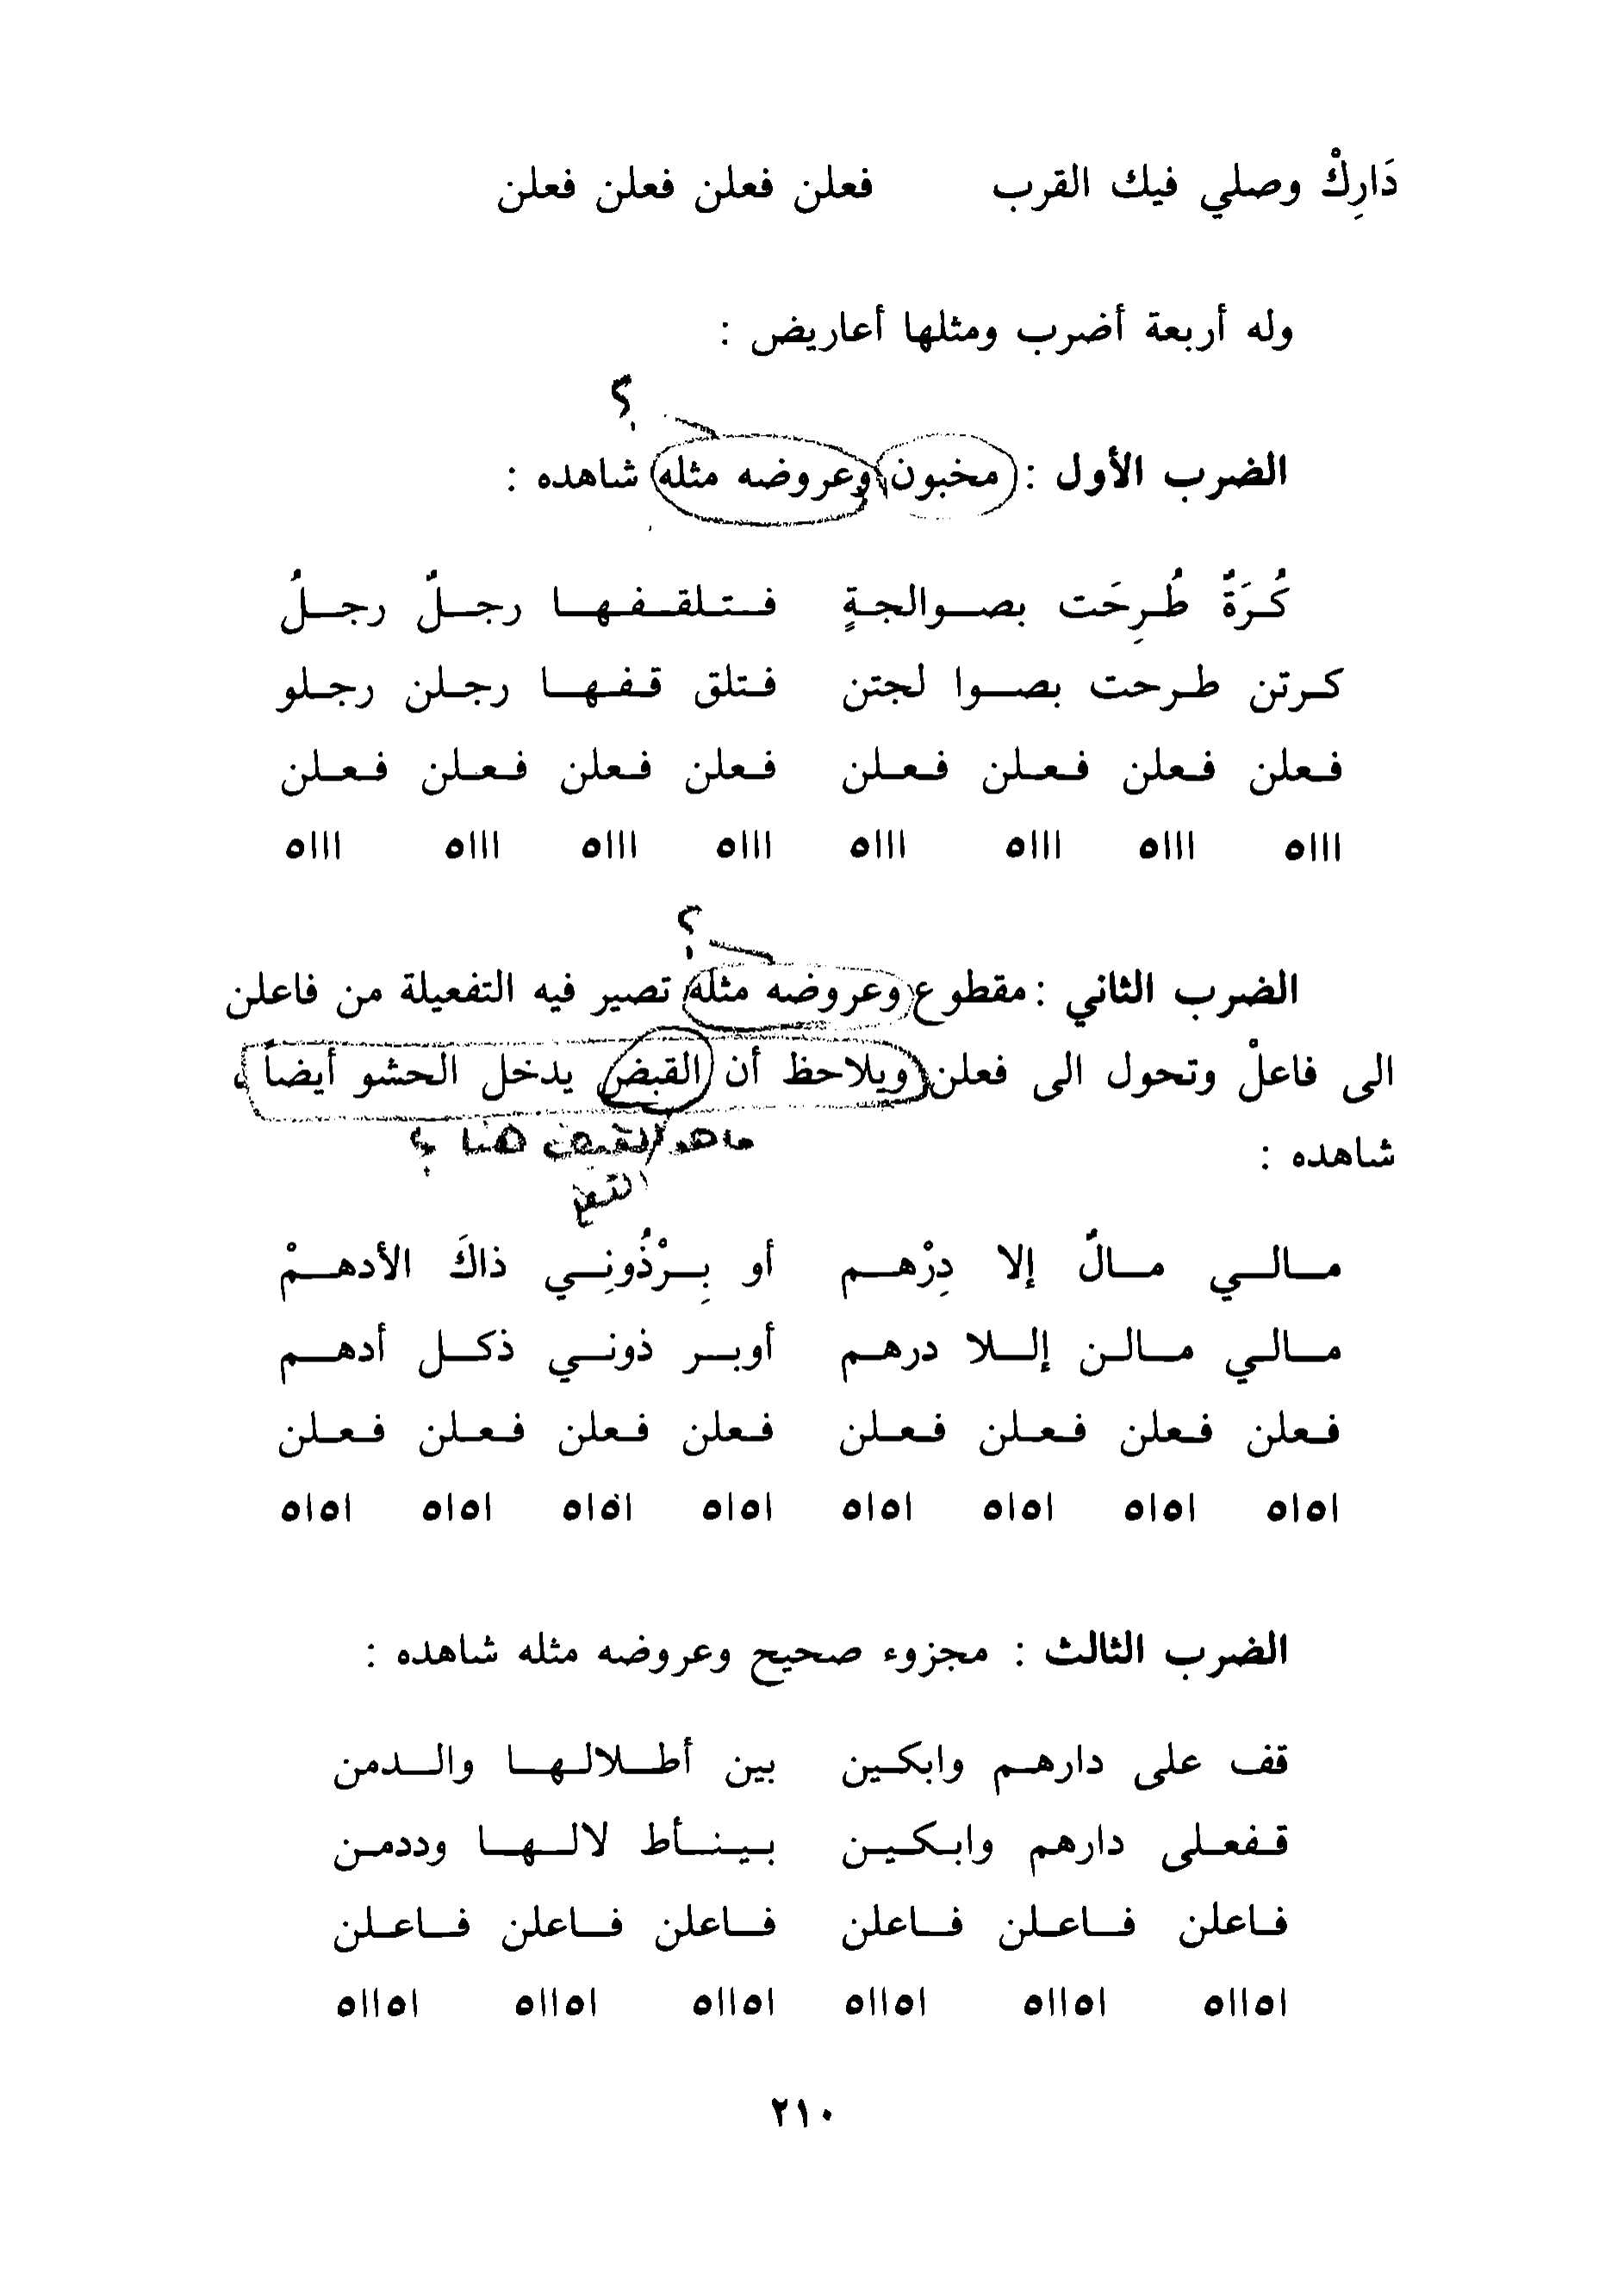 دَارِكْ وصلي فيك القرب فعلن فعلن فعلن فعلن
وله أربعة أضرب ومثلها أعاريض :
؟
الضرب الأول : مخبون وعروضه مثله شاهده :
كُـرَةٌ طُـرِحَت بصـوالجـةٍ فـتـلقـفـهـا رجـلٌ رجـلُ
كـرتن طـرحت بصـوا لجتن فـتلق قـفـهـا رجـلن رجـلو
فـعلن فـعلن فـعـلن فـعـلن فـعلن فـعلن فـعـلن فـعـلن
ااا٥ ااا٥ ااا٥ ااا٥ ااا٥ ااا٥ ااا٥ ااا٥
؟
الضرب الثاني : مقطوع وعروضه مثله تصير فيه التفعيلة من فاعلن
الى فاعلْ وتحول الى فعلن ويلاحظ أن القبض يدخل الحشو أيضاً ،
ماهو القبض هنا ؟
شاهده :
مـالـي مـالٌ إلا دِرْهـم أو بِـرْذُونِـي ذاكَ الأدهـمْ
مـالـي مـالـن إلـلا درهـم أوبـر ذونـي ذكـل أدهـم
فـعلن فـعلن فـعـلن فـعـلن فـعلن فـعلن فـعـلن فـعـلن
ا٥ا٥ ا٥ا٥ ا٥ا٥ ا٥ا٥ ا٥ا٥ ا٥ا٥ ا٥ا٥ ا٥ا٥
الضرب الثالث : مجزوء صحيح وعروضه مثله شاهده :
قفـ على دارهـم وابكـين بين أطـلالـهـا والـدمن
قـفعـلى دارهم وابـكـيـن بـيـنـأط لالـهـا وددمـن
فـاعلن فـاعـلن فـاعلن فـاعلن فـاعلن فـاعـلن
ا٥اا٥ ا٥اا٥ ا٥اا٥ ا٥اا٥ ا٥اا٥ ا٥اا٥
٢١٠